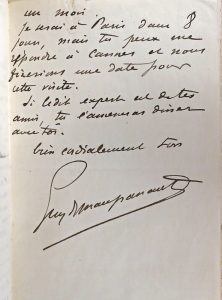 un mois.
je serai à Paris dans 8
jours, mais tu peux me
répondre à Cannes et nous
fixerons une date pour
cette visite.
Si ledit expert est de tes
amis, tu l'amèneras dîner
avec toi.
bien cordialement ton
Guy de Maupassant